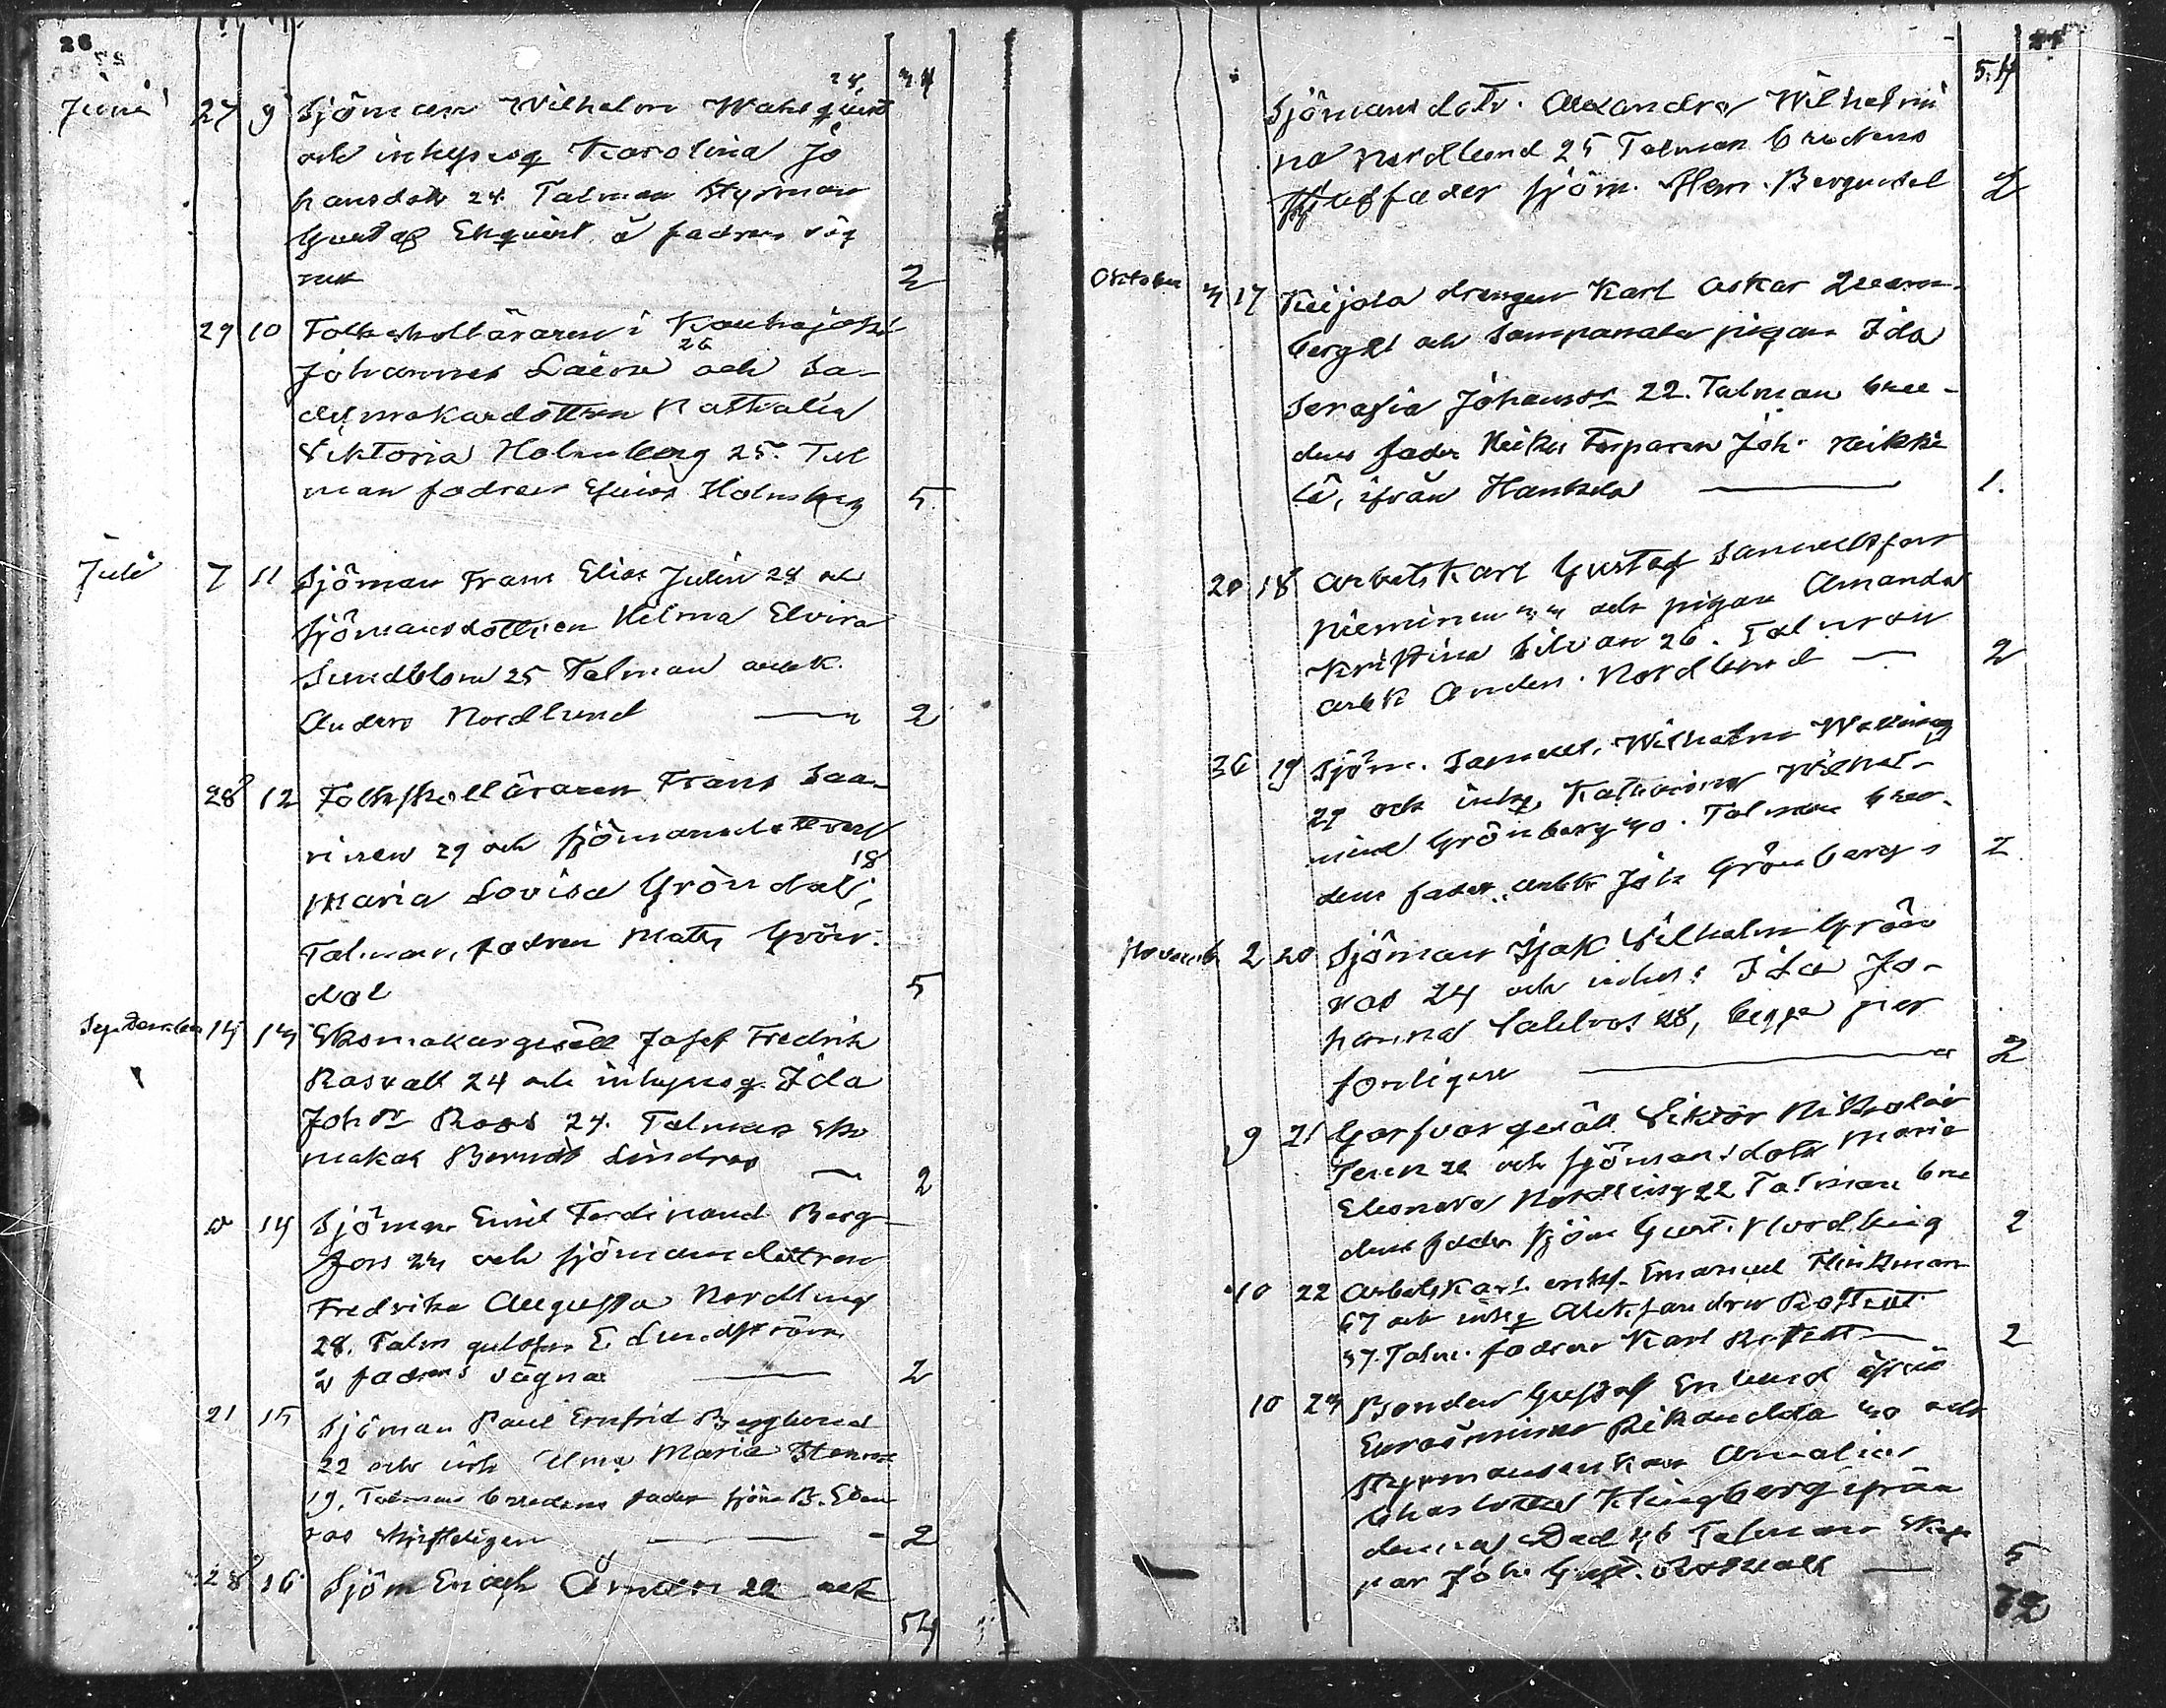 26
28 34
Juni 27 9 Sjöman Wilhelm Wahlqvist
och inhysesg Karolina Jo
hansdotr 24. Talman Styrman
Gustaf Ekqvist å fadrens väg
nar 2
29 10 Folkskolläraren i Kauhajoki
26
Johannes Laine och Sa-
delmakaredottren Nathalia
Viktoria Holmberg 25. Tal
man fadren Holmberg 5
Juli 7 11 Sjöman Frans Elias Julin 28 och
sjömansdottren Hilma Elvira
Sundblom 25 Talman arbk.
Anders Nordlund — 2
28 12 Folkskolläraren Frans Saa-
rinen 29 och sjömansdottren
18
Maria Lovisa Gröndal,
Talman, fadren Matts Grön-
dal 5
September 14 13 Skomakargesäll Josef Fredrik
Rosvall 24 och inhysesg. Ida
Johdr Roos 24. Talman Sko
makar Berndt Lindros — 2
14 Sjöman Emil Ferdinand Berg-
fors 23 och sjömansdottren
Fredrika Augusta Nordling
28. Talm guldsm E Lundström
å fadrens vägnar — 2
21 15 Sjöman Paul Ernfrid Berglund
22 och inh Maria Stenroos
19. Talman brudens fader sjöm
skriftligen — 2
28 16 Sjöm Erich 22 och
54
27
54
Sjömansdotr. Alexandra Wilhelmi
na Nordlund 25 Talman brudens
styffader sjöm. Herm. Bergendal 2
Oktober 3 17 Keijola drengen Karl Oskar
berg 21 och Sampanala pigan Ida
Serafia Johansdr 22. Talman bru-
dens fader Torparen Joh. Heikki
lä, ifrån — 1.
20 18 Arbetskarl Gustaf Samuelsson
Nieminen 33 och pigan Amanda
Kristina Silvan 26. Talman
arbk Anders Nordlund — 2
19 Sjöm. Samuel Wilhelm Walling
29 och inhg. Katharina Wilhel-
mina Grönberg 30. Talman bru-
dens fader, arbk Joh Grönberg 2
Novemb 2 20 Sjöman Isak Vilhelm Grön
roos 24 och inhes: Ida Jo-
hanna Sahlroos 28, begge per
sonligen — 2
9 21 Garfvargesäll Viktor Nikolai
22 och sjömansdotr Maria
Eleonora Nordling 22 Talman bru
dens fader sjöm Gust. Nordling 2
10 22 Arbetskarl enkl. Emanuel Flinkman
67 och inhg Alexsandra
37. Talm. fadren Karl — 2
10 23 Bonden Gustaf Enlund ifrån
Euraåminne 40 och
Styrmansenkan Amalia
Charlotta Klingberg ifrån
denna Stad 46 Talman Skep
par Joh. Gust. Rosvall — 5
72